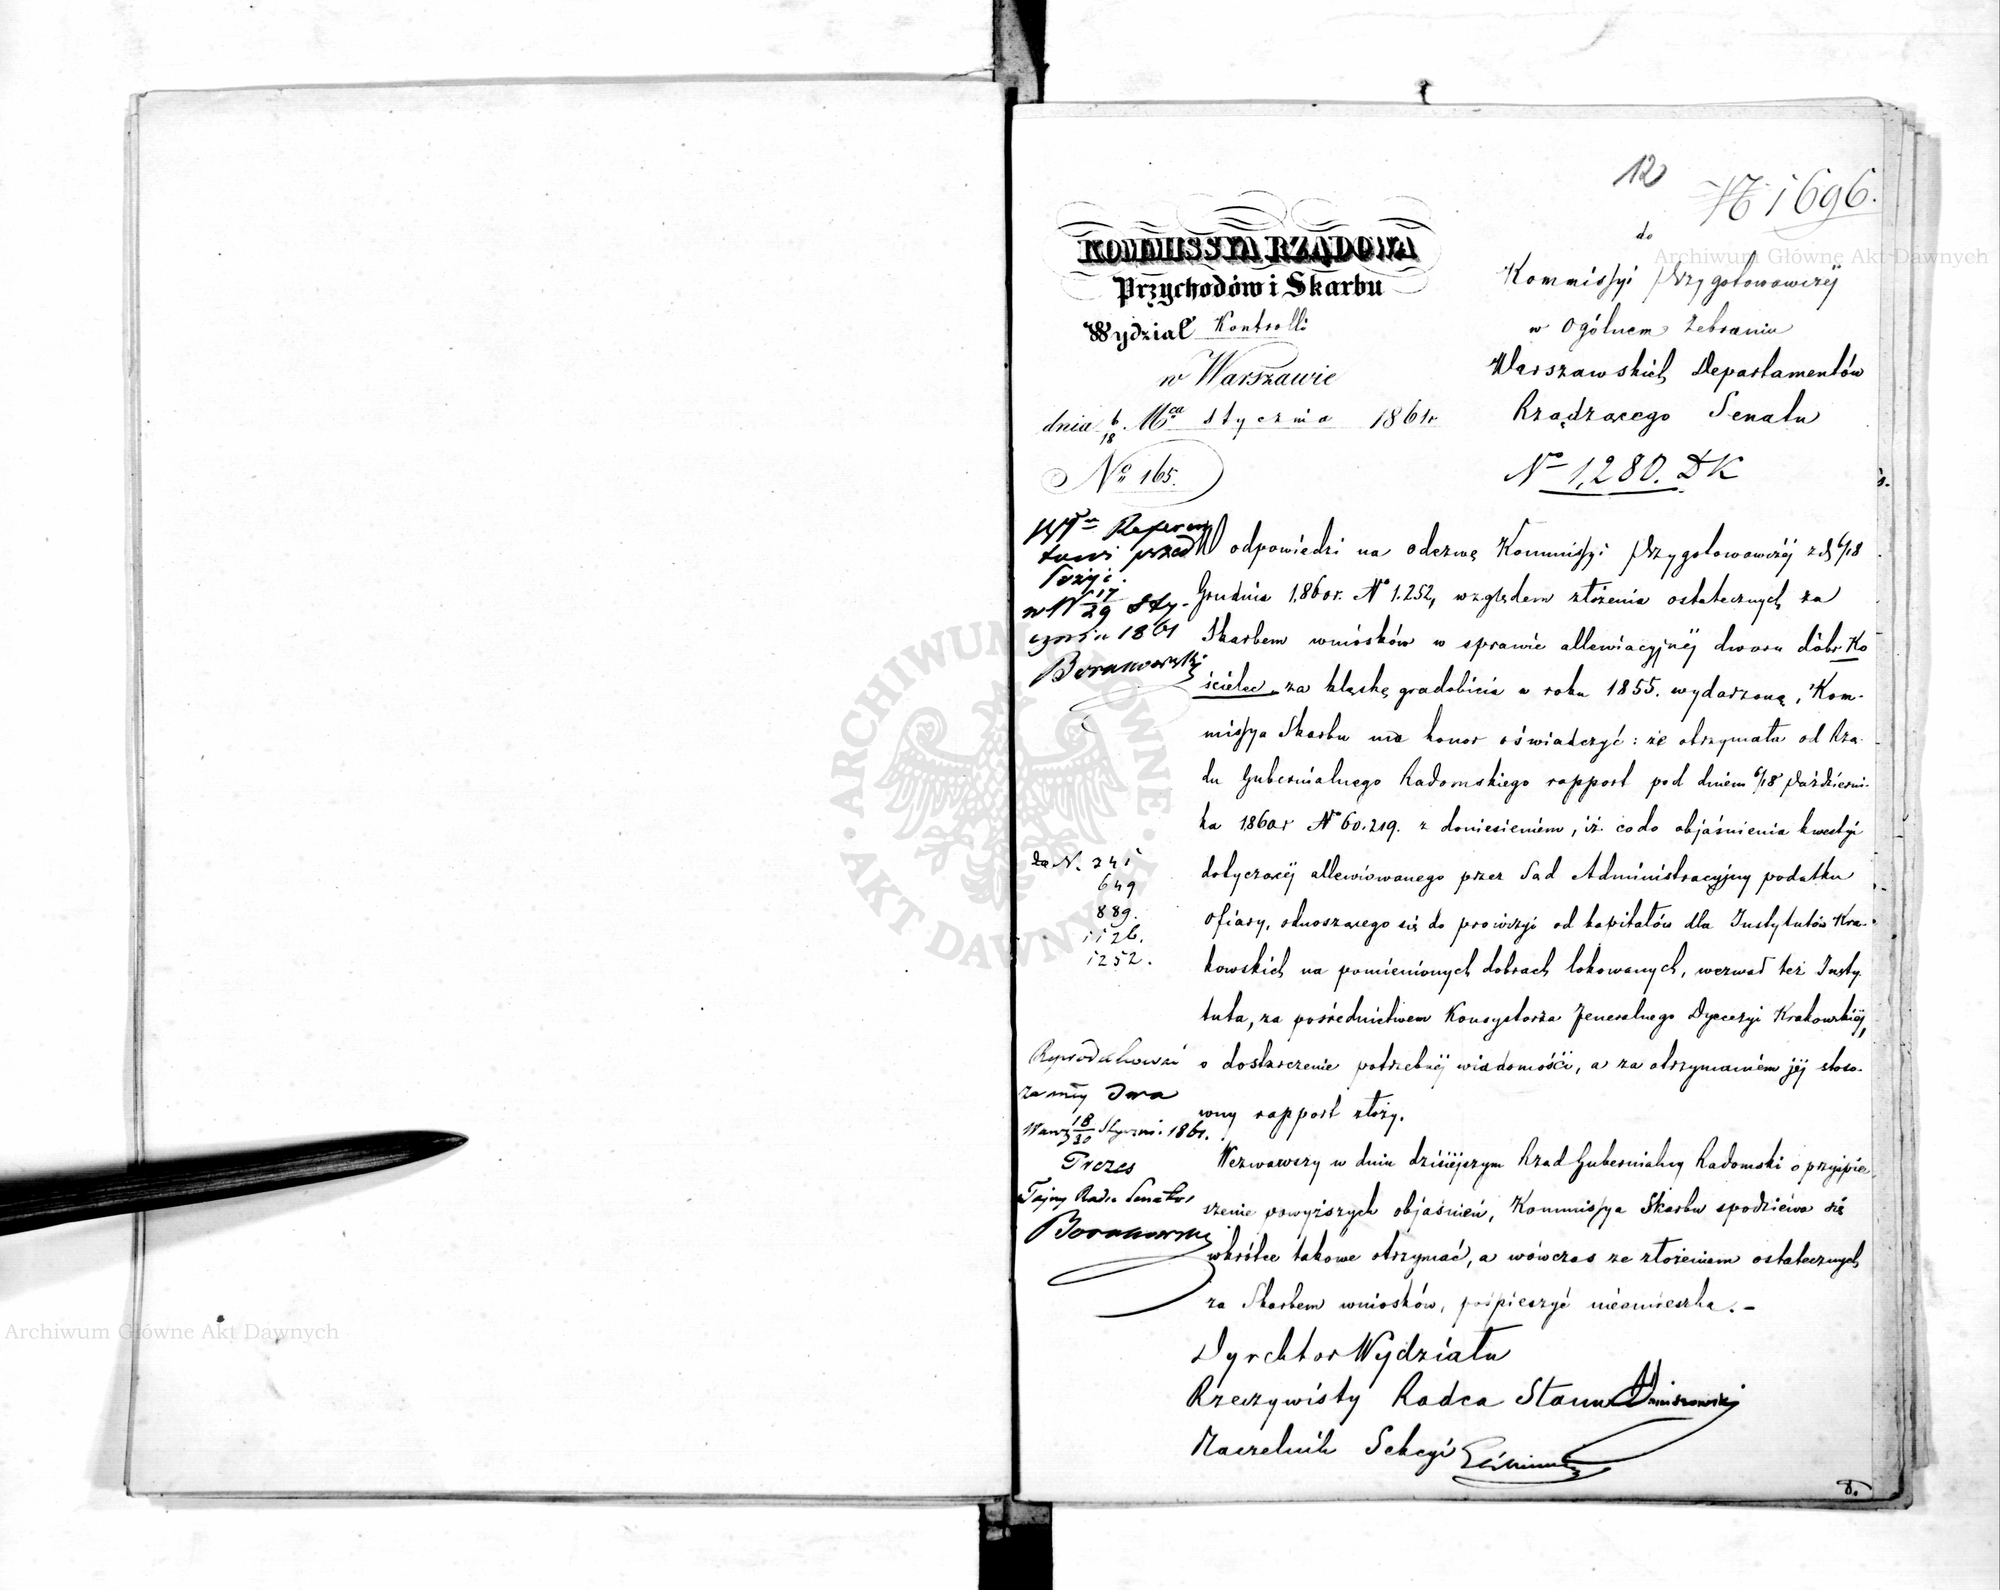 12
№ 1696.
KOMMISSYA RZĄDOWA
Przychodów i Skarbu
Wydział Kontrolli
w Warszawie
dnia 6/18 Mca stycznia 1861r.
No 165.
do
Kommissyi Przygotowawczéj
w Ogólnem Zebraniu
Warszawskich Departamentów
Rządzącego Senatu
No 1,280. DK
w W 17/29 Sty-
cznia 1861
W odpowiedzi na odezwę Kommissyi Przygotowawczéj z d. 6/18
Grudnia 1,860r. No 1.252, względem złożenia ostatecznych za
Skarbem wniosków w sprawie allewiacyjnéj dworu dóbr Ko
ścielec za klęskę gradobicia w roku 1855. wydarzoną, Kom-
missya Skarbu ma honor oświadczyć: że otrzymała od Rzą-
du Gubernialnego Radomskiego rapport pod dniem 6/18 Październi-
ka 1860r No 60.219. z doniesieniem, iż co do objaśnienia kwestyi
dotyczącéj allewiowanego przez Sąd Administracyjny podatku
ofiary, odnoszącego się do prowizyi od kapitałów dla Instytutów Kra-
kowskich na pomienionych dobrach lokowanych, wezwał też Insty
tuta, za pośrednictwem Konsystorza Jeneralnego Dyecezyi Krakowskiéj,
o dostarczenie potrzebnéj wiadomości, a za otrzymaniem jéj stoso-
wny rapport złoży.
Wezwawszy w dniu dzisiéjszym Rząd Gubernialny Radomski o przyspie-
szenie powyższych objaśnień, Kommissya Skarbu spodziéwa się
wkrótce takowe otrzymać, a wówczas ze złożeniem ostatecznych
za Skarbem wniosków, pośpieszyć nieomieszka.-
Dyrektor Wydziału
Rzeczywisty Radca Stanu
Naczelnik Sekcyi
do N. 241
649
889.
1126.
1252.
18/30 1861.
Prezes
Tajny Radca Senator
8.
ARCHIWUM GŁÓWNE AKT DAWNYCH
Archiwum Główne Akt Dawnych
Archiwum Główne Akt Dawnych